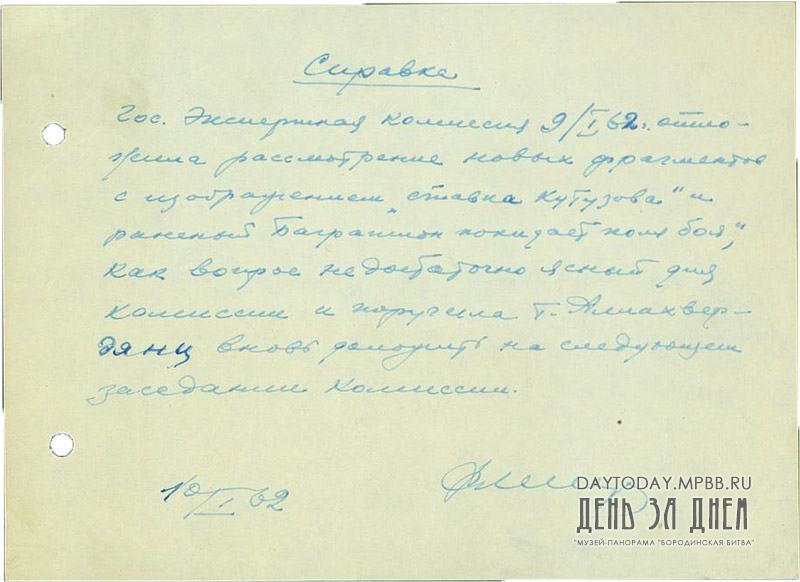 Справка
Гос. Экспертная комиссия 9/I 62г. отло-
жила рассмотрение новых фрагментов
с изображением „ставка Кутузова" и
„раненый Багратион покидает поля боя",
как вопрос недостаточно ясный для
комиссии и поручила т. Аллахвер-
дянц вновь доложить на следующем
заседании комиссии.
10/I 62
DAYTODAY.MPBB.RU
ДЕНЬ ЗА ДНЕМ
"МУЗЕЙ-ПАНОРАМА "БОРОДИНСКАЯ БИТВА"